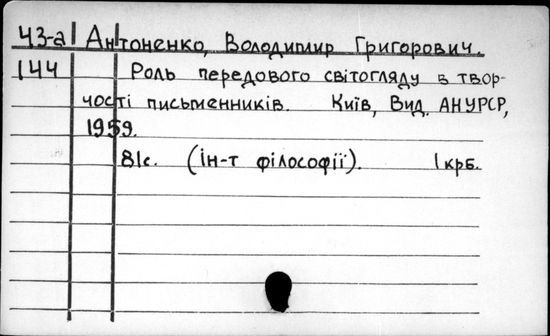 43-а Антоненко, Володимир Григорович.
144 Роль передового світогляду в твор-
чості письменників. Київ, Вид. АНУРСР,
1959.
81с. (ін-т філософії). 1 крб.